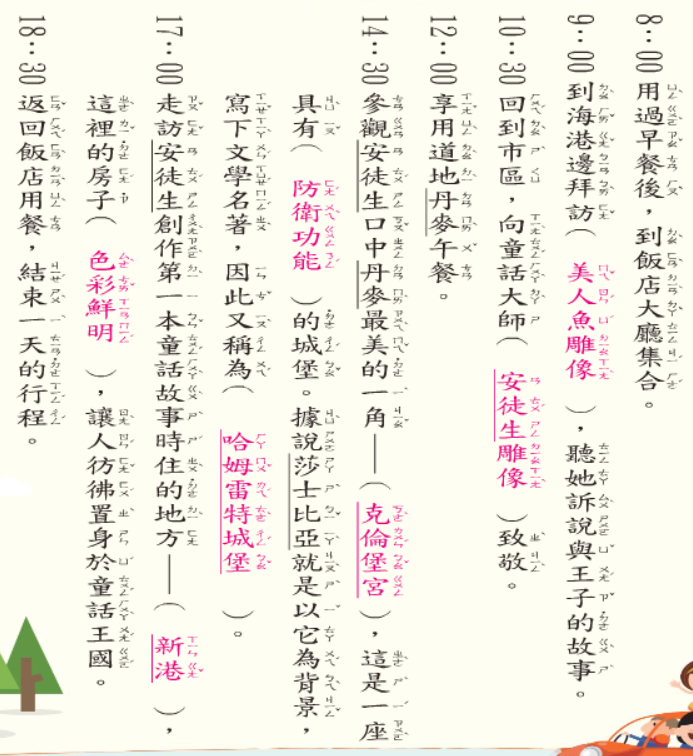 8：00用過早餐後，到飯店大廳集合。
9：00到海港邊拜訪（美人魚雕像），聽她訴說與王子的故事。
10：30回到市區，向童話大師（安徒生雕像）致敬。
12：00享用道地丹麥午餐。
14：30參觀安徒生口中丹麥最美的一角——（克倫堡宮），這是一座
具有（防衛功能）的城堡。據說莎士比亞就是以它為背景，
寫下文學名著，因此又稱為（哈姆雷特城堡）。
17：00走訪安徒生創作第一本童話故事時住的地方——（新港），
這裡的房子（色彩鮮明），讓人彷彿置身於童話王國。
18：30返回飯店用餐，結束一天的行程。